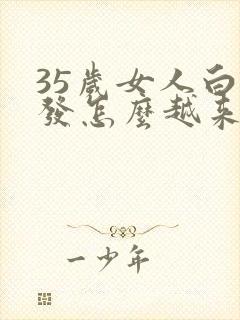 35歲女人白
發怎麼越來
一少年